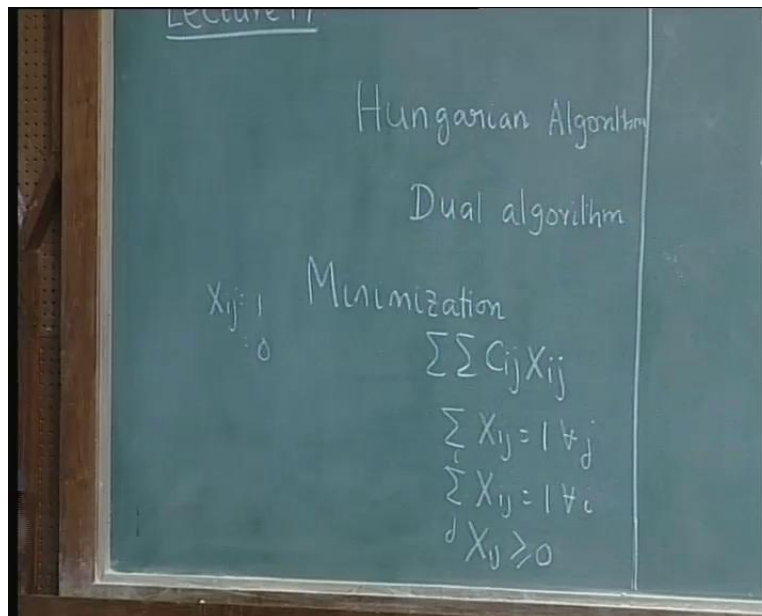 Lecture 17
Hungarian Algorithm
Dual algorithm
Minimization
Xij = 1
= 0
∑ ∑ Cij Xij
∑i Xij = 1 ∀j
∑j Xij = 1 ∀i
Xij ≥ 0